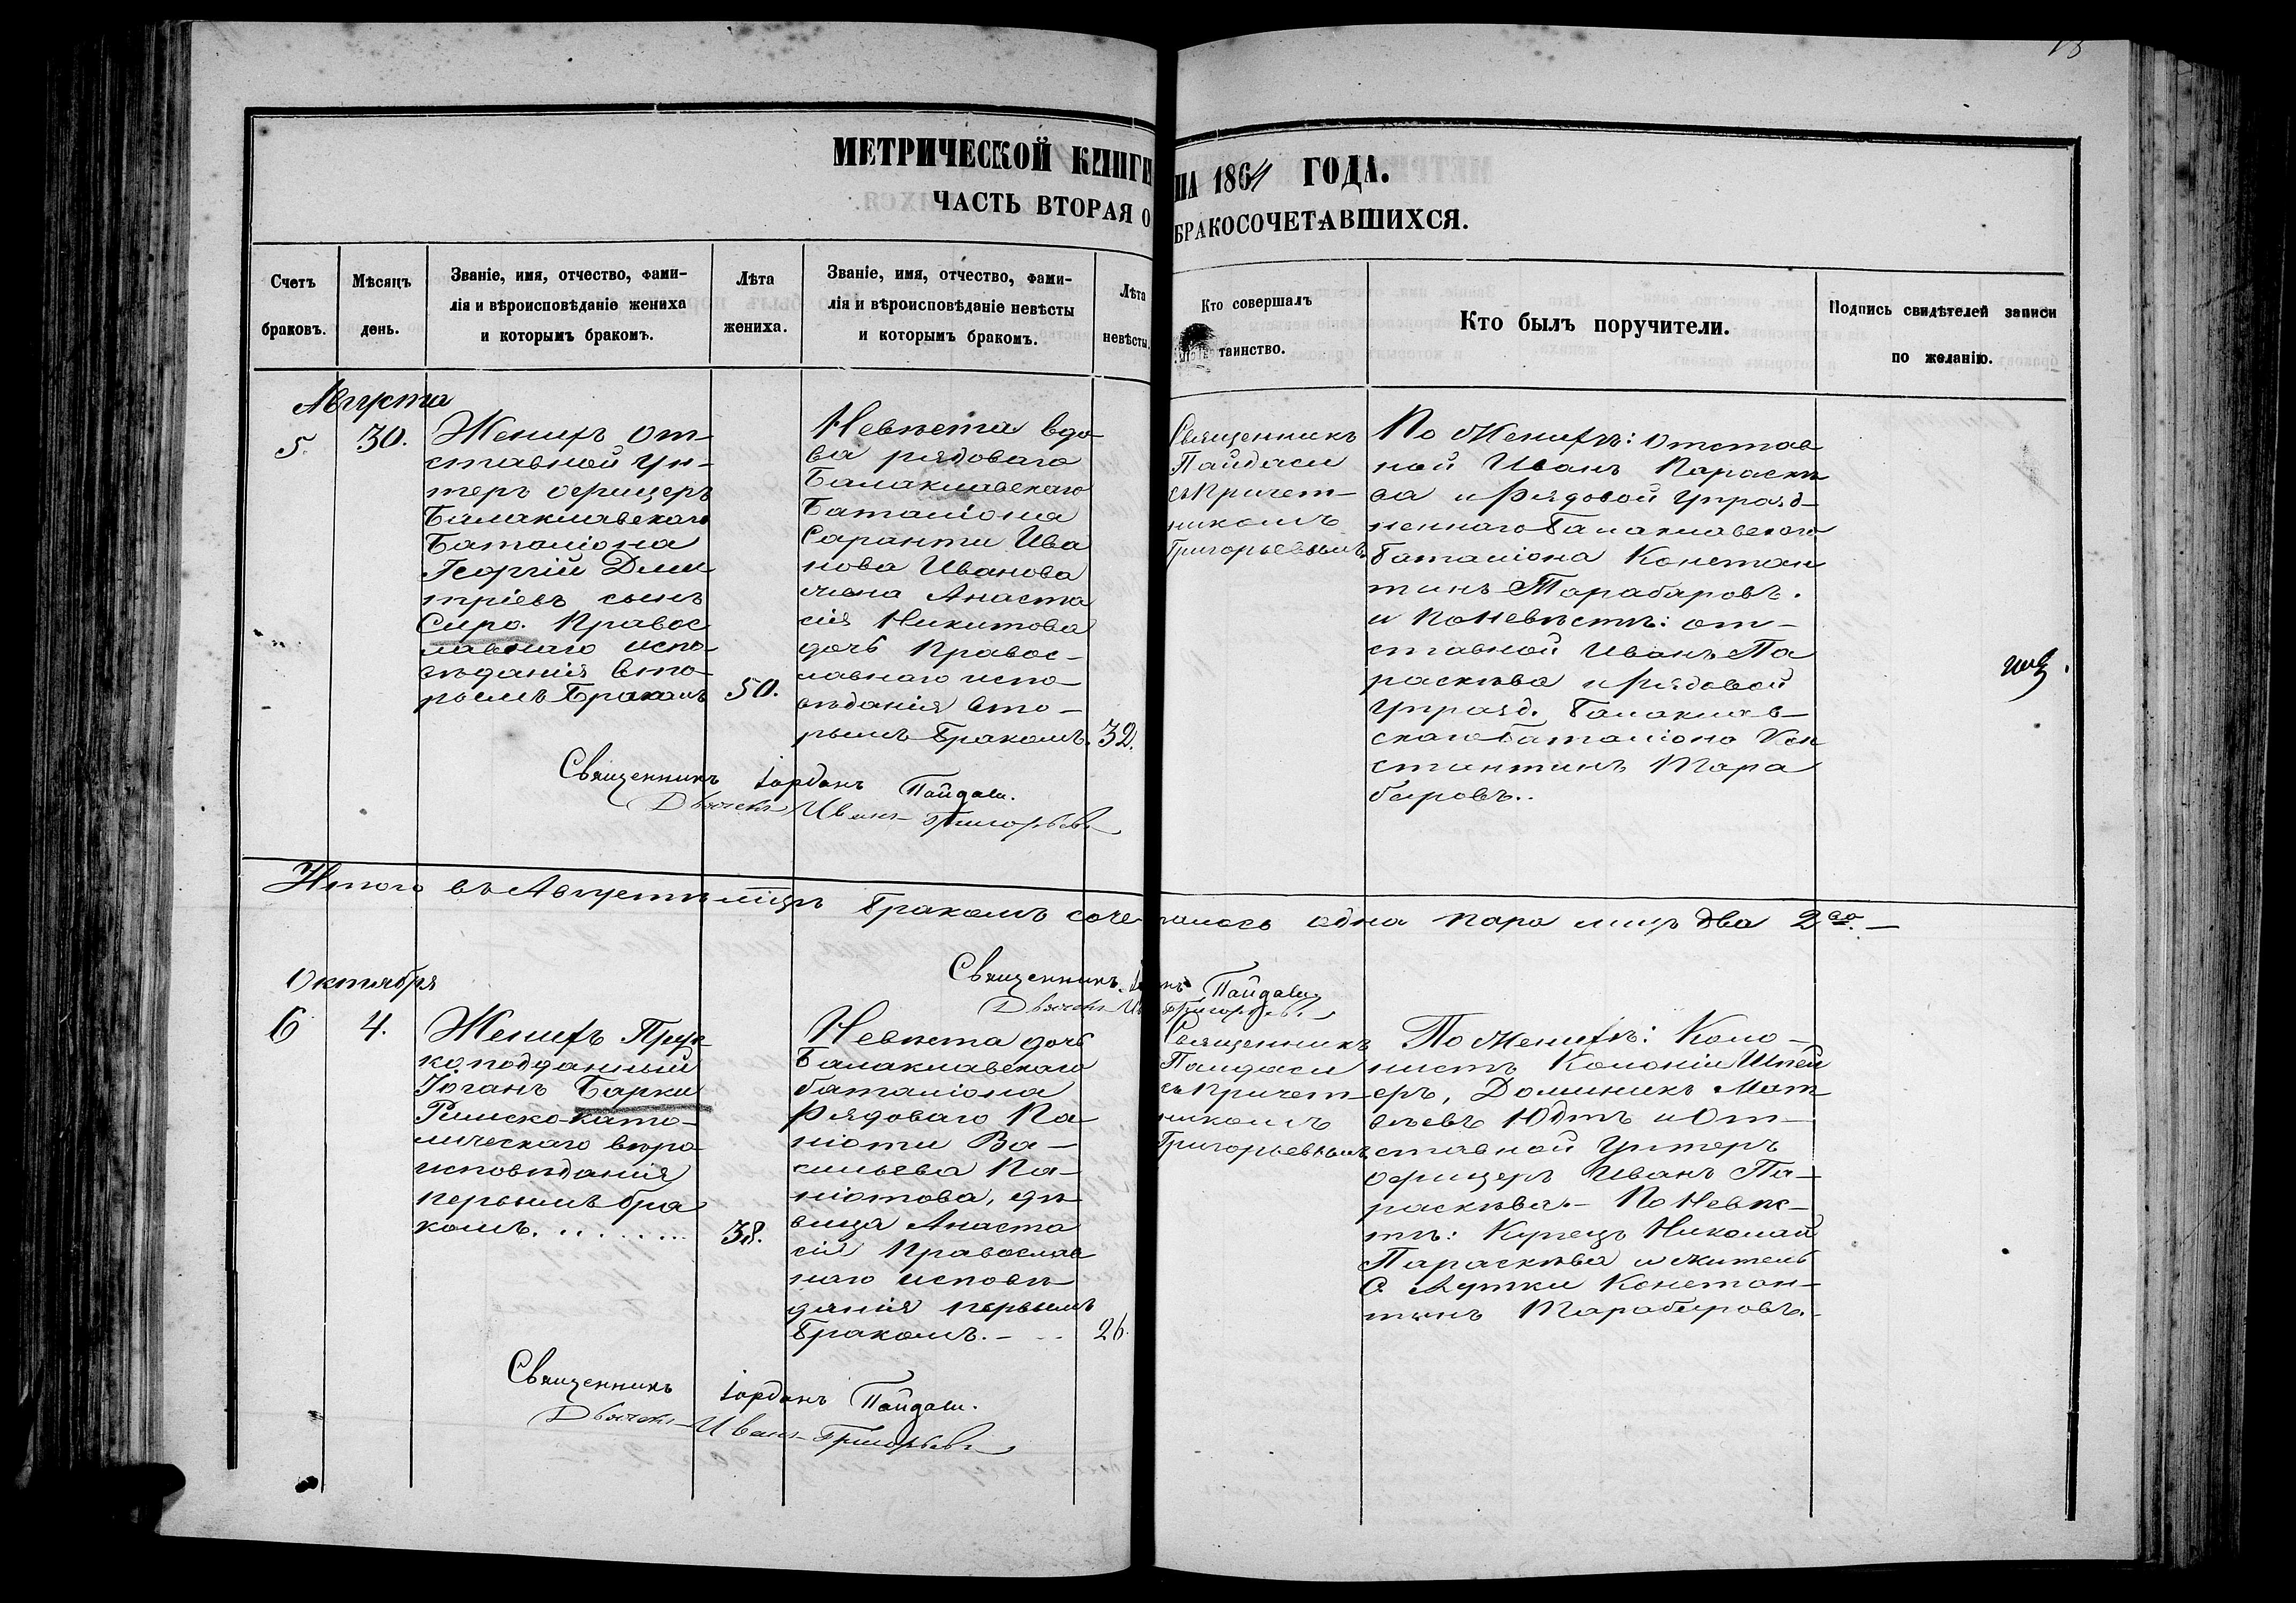 МЕТРИЧЕСКОЙ КНИГИ
НА 1864 ГОДА.
ЧАСТЬ ВТОРАЯ О
БРАКОСОЧЕТАВШИХСЯ.
Счетъ
браковъ.
Мѣсяцъ
день.
Званіе, имя, отчество, фами-
лія и вѣроисповѣданіе жениха
и которымъ бракомъ.
Лѣта
жениха.
Званіе, имя, отчество, фами-
лія и вѣроисповѣданіе невѣсты
и которымъ бракомъ.
Лѣта
невѣсты.
Кто совершалъ
таинство.
Кто былъ поручители.
Подпись свидѣтелей записи
по желанію.
Августа
5.
30.
Женихъ от-
ставной Ун-
теръ офицеръ
Балаклавскаго
Баталіона
Георгій Дми
тріевъ сынъ
Сиро. Правос
лавнаго испо-
вѣданія вто-
рымъ Бракомъ
50.
Невѣста вдо-
ва рядоваго
Балаклавскаго
Баталіона
Саранти Ива
нова Иванова
жена Анаста
сія Никитова
дочь Правос-
лавнаго испо-
вѣданія вто-
рымъ Бракомъ.
32.
Священникъ
Пайдаси
съ Причет-
никомъ
Григорьевымъ
По Женихѣ: отстав
ной Иванъ Параскѣ
ва и Рядовой Упразд-
неннаго Балаклавскаго
Баталіона Констан
тинъ Тарабаровъ.
и по Невѣстѣ: от-
ставной Иванъ Па
раскѣва и Рядовой
Упразд. Балаклав-
скаго Баталіона Кон
стантинъ Тара
баровъ..
Священникъ Іорданъ Пайдаси.
Дьячекъ Иванъ Григорьевъ
Итого въ Августѣ мѣцѣ Бракомъ сочеталось одна пара лицъ два 2
Священникъ Пайдаси
Дьячекъ Григорьевъ
Октября
6
4.
Женихъ Прус
коподданный
Іоганъ Барки
Римско-като-
лическаго вѣро
исповѣданія
первымъ бра
комъ.
38.
Невѣста дочь
Балаклавскаго
баталіона
Рядоваго Па
ніоти Ва-
сильева Па-
ніотова, дѣ-
вица Анаста
сія Православ
наго исповѣ-
данія первымъ
Бракомъ.
26.
Священникъ
Пайдаси
съ Причет-
никомъ
Григорьевымъ
По Женихѣ: Коло-
нистъ Колоніи Шпей
еръ, Доминикъ Мат
вѣевъ Юдтъ и От-
ставной Унтеръ
офицеръ Иванъ Па-
раскѣва.- По Невѣс-
тѣ: Купецъ Николай
Параскѣва и житель
С. Аутки Констан-
тинъ Тарабаровъ.
Священникъ Іорданъ Пайдаси.
Дьячекъ Иванъ Григорьевъ